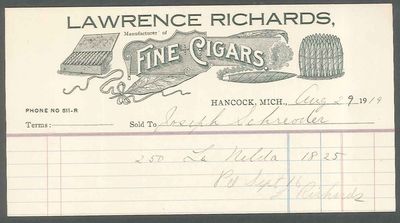 LAWRENCE RICHARDS,
Manufacturer of
FINE CIGARS.
HANCOCK, MICH., Aug 29 1919
PHONE NO 611-R
Terms: Sold To Joseph Schroeder
250 La Nelda 18 25
Pd Sept 16
L Richards